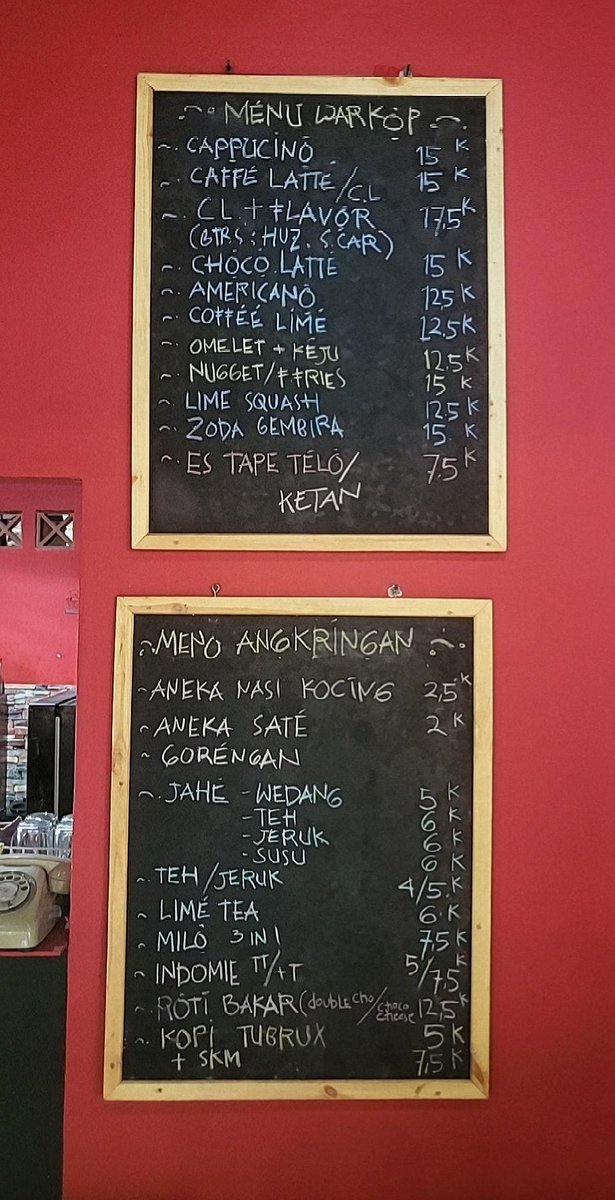 MENU WARKOP
CAPPUCINO 15 K
CAFFÉ LATTE/C.L 15 K
C.L + FLAVOR 17,5 K
(BTRS: HUZ. S.CAR)
CHOCO LATTE 15 K
AMERICANO 12,5 K
COFFÉÉ LIME 12.5 K
OMELET + KEJU 12.5 K
NUGGET/FFRIES 15 K
LIME SQUASH 12.5 K
ZODA GEMBIRA 15. K
ES TAPE TELO/ 7,5 K
KETAN
MENU ANGKRINGAN
ANEKA NASI KOCING 2,5 K
ANEKA SATÉ 2 K
GORÉNGAN
JAHÉ - WEDANG 5 K
- TEH 6 K
- JERUK 6 K
- SUSU 6 K
TEH/JERUK 4/5.K
LIMÉ TEA 6 K
MILO 3 IN 1 7,5 K
INDOMIE TT/+T 5/7,5 K
ROTI BAKAR (double cho/choco cheese 12,5 K
KOPI TUBRUX 5 K
+ SKM 7,5 K